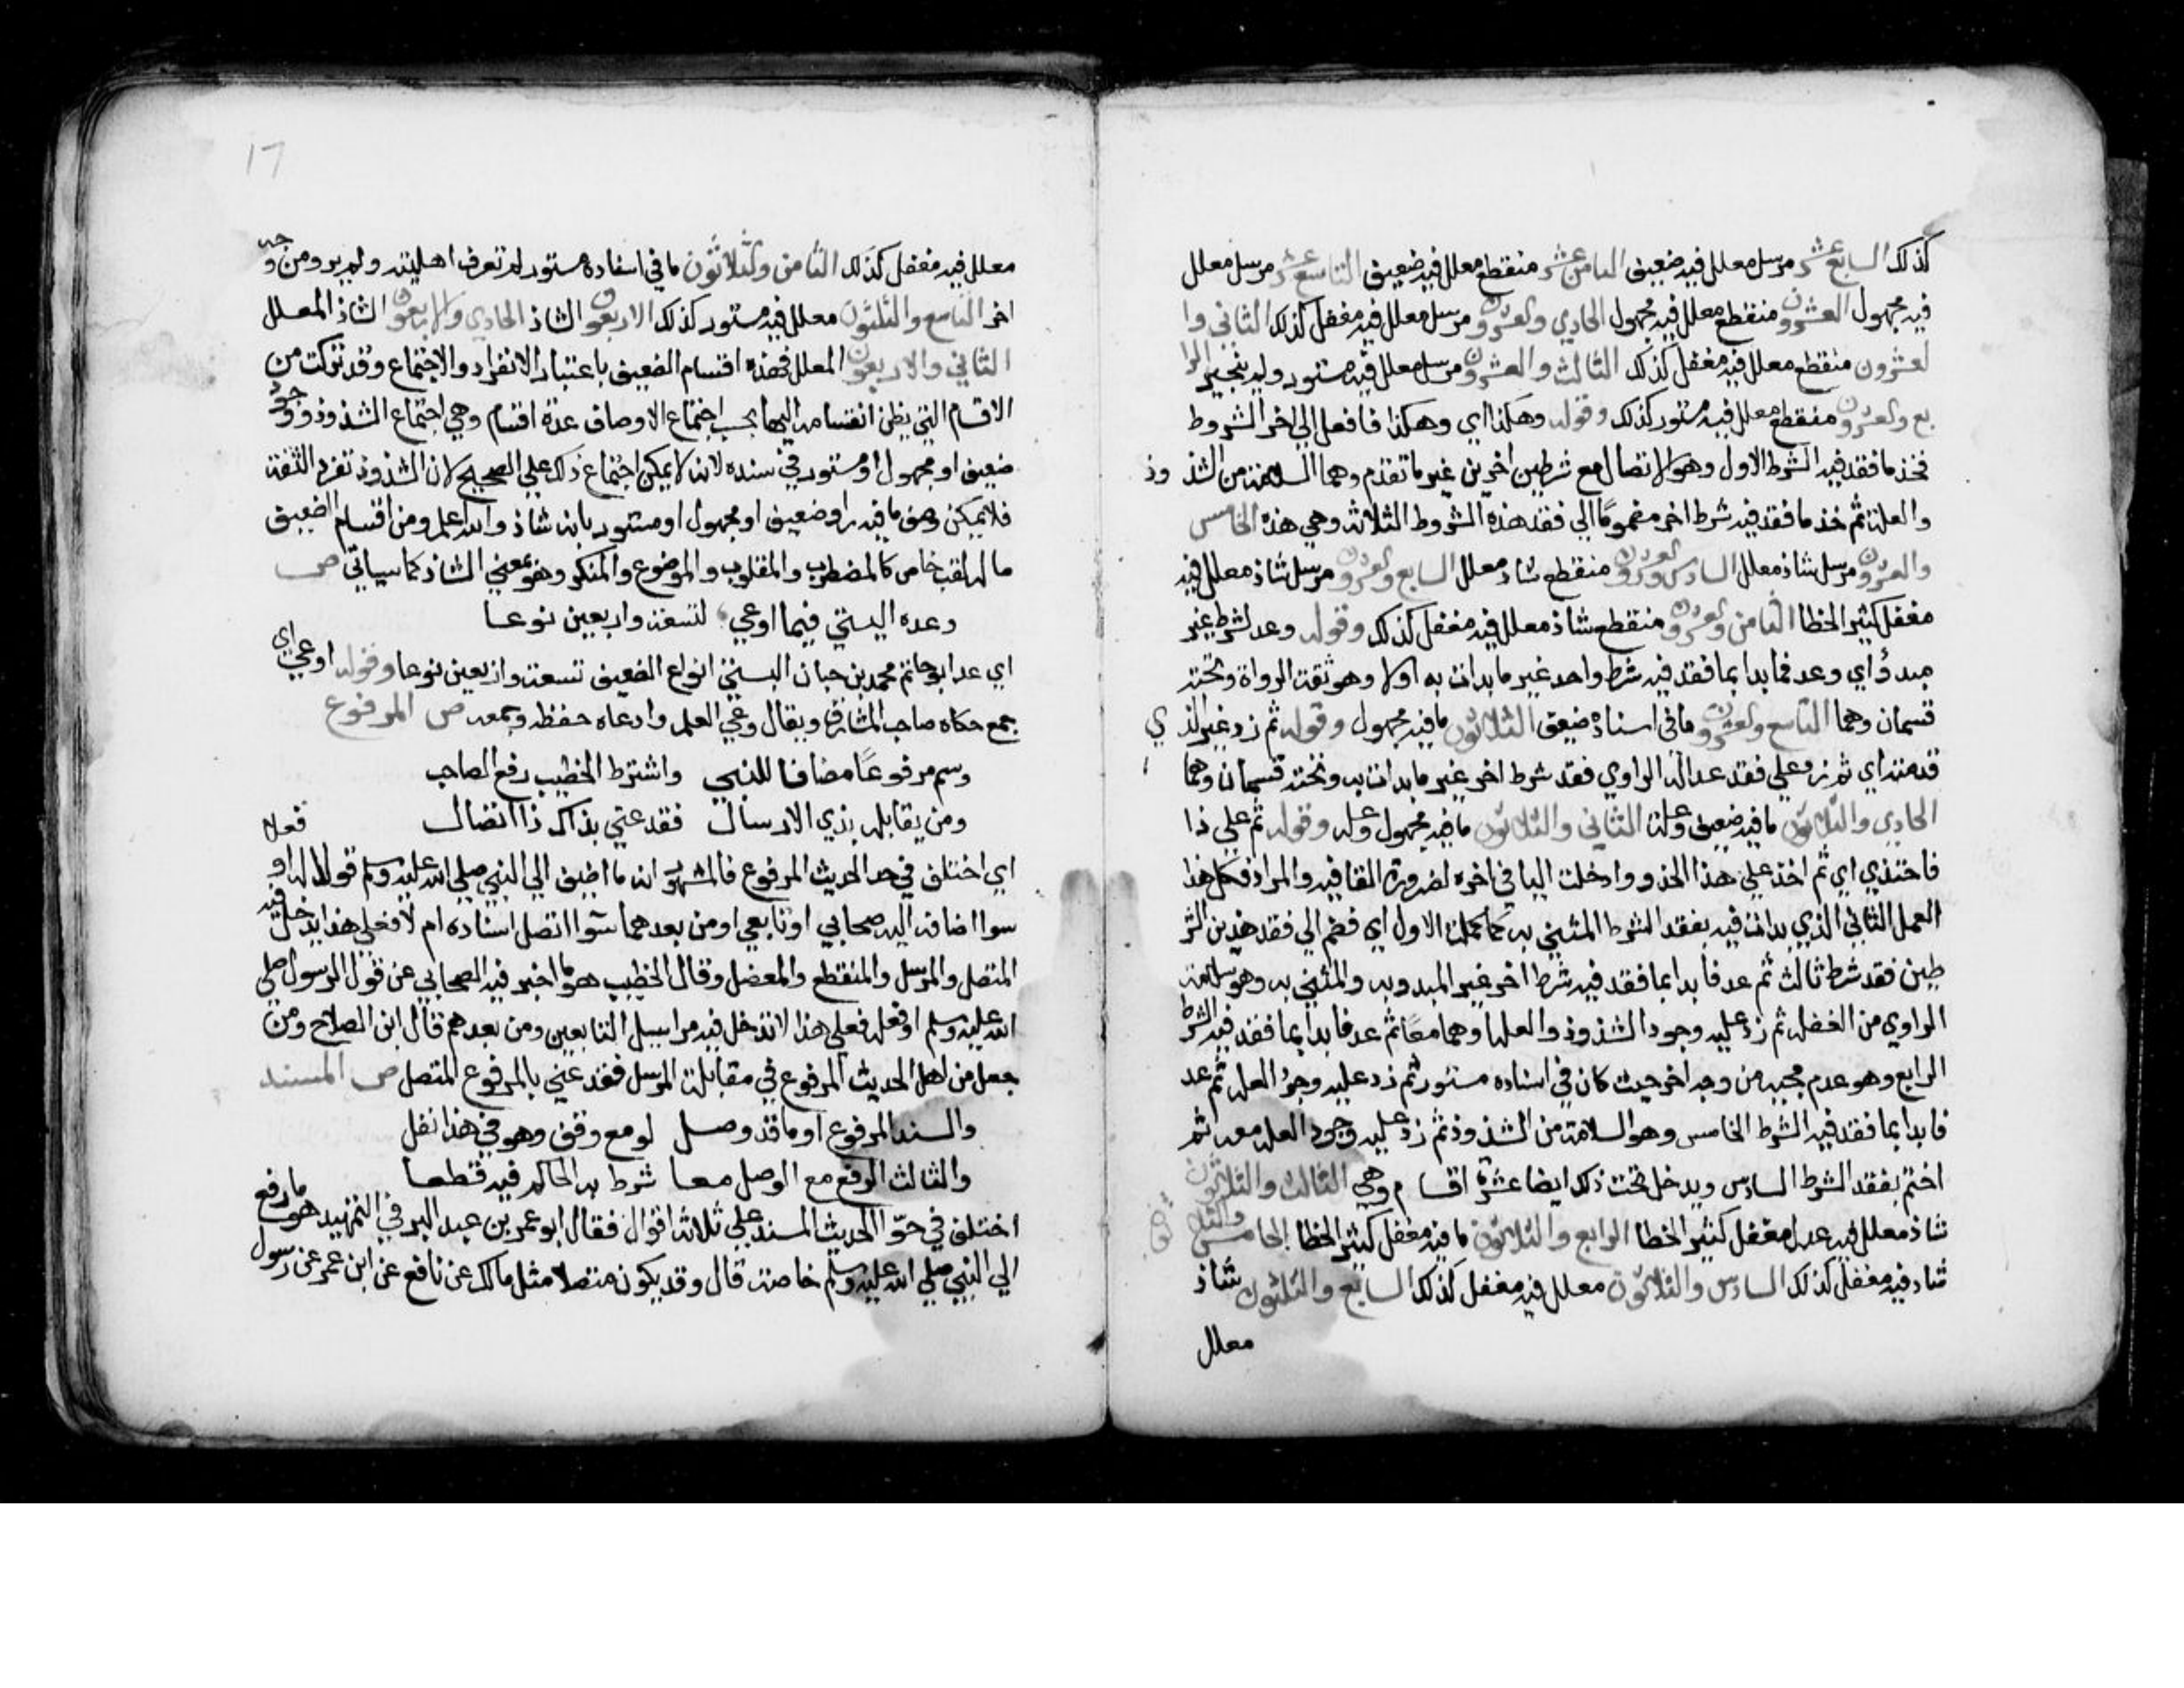 كذلك السابع عشر مرسل معلل فيه ضعيف الثامن عشر منقطع معلل فيه ضعيف التاسع عشر مرسل معلل
فيه مجهول العشرون منقطع معلل فيه مجهول الحادي والعشرون مرسل معلل فيه مغفل كذلك الثاني وا
لعشرون منقطع معلل فيه مغفل كذلك الثالث والعشرون مرسل معلل فيه مستور ولم ينجبر الرا
بع والعشرون منقطع معلل فيه مستور كذلك وقوله وهكذا اي وهكذا فافعل الي اخر الشروط
فخذ ما فقد فيه الشرط الاول وهو الاتصال مع شرطين اخرين غير ما تقدم وهما السلامة من الشذوذ
والعلة ثم خذ ما فقد فيه شرط اخر مضموما الي فقد هذه الشروط الثلاثة وهي هذه الخامس
والعشرون مرسل شاذ معلل السادس والعشرون منقطع شاذ معلل السابع والعشرون مرسل شاذ معلل فيه
مغفل كثير الخطا الثامن والعشرون منقطع شاذ معلل فيه مغفل كذلك وقوله وعد لشرط غير
مبدؤ اي وعد فابدا بما فقد فيه شرط واحد غير ما بدات به اولا وهو ثقة الرواة وتحته
قسمان وهما التاسع والعشرون ما في اسناده ضعيف الثلاثون ما فيه مجهول وقوله ثم زد غير الذي
قدمته اي ثم زد علي فقد عدالة الراوي فقد شرط اخر غير ما بدات به وتحته قسمان وهما
الحادي والثلاثون ما فيه ضعيف وعلة الثاني والثلاثون ما فيه مجهول وعله وقوله ثم علي ذا
فاحتذي اي ثم احذ علي هذا الحذو وادخلت اليا في اخره لضرورة القافيه والمراد فكمل هذا
العمل الثاني الذي بدات فيه بفقد الشرط المثني به كما كملت الاول اي فضم الي فقد هذين الشر
طين فقد شرط ثالث ثم عد فابدا بما فقد فيه شرط اخر غير المبدو به والمثني به وهو سلامة
الراوي من الغفله ثم زد عليه وجود الشذوذ والعله او هما معا ثم عد فابدا بما فقد فيه الشرط
الرابع وهو عدم مجيه من وجه اخر حيث كان في اسناده مستور ثم زد عليه وجود العله ثم عد
فابدا بما فقد فيه الشرط الخامس وهو السلامة من الشذوذ ثم زد عليه وجود العله معه ثم
اختم بفقد الشرط السادس ويدخل تحت ذلك ايضا عشرة اقسام وهي الثالث والثلاثون
شاذ معلل فيه عدل مغفل كثير الخطا الرابع والثلاثون ما فيه مغفل كثير الخطا الخامس والثلاثون
شاذ فيه مغفل كذلك السادس والثلاثون معلل فيه مغفل كذلك السابع والثلثون شاذ
معلل
١٦
معلل فيه مغفل كذلك الثامن والثلاثون ما في اسناده مستور لم تعرف اهليته ولم يرو من وجه
اخر التاسع والثلثون معلل فيه مستور كذلك الاربعون الشاذ الحادي والاربعون الشاذ المعلل
الثاني والاربعون المعلل فهذه اقسام الضعيف باعتبار الانفراد والاجتماع وقد تركت من
الاقسام التي يظن انقسامه اليها بحسب اجتماع الاوصاف عدة اقسام وهي اجتماع الشذوذ ووجود
ضعيف او مجهول او مستور في سنده لانه لا يمكن اجتماع ذلك علي الصحيح لان الشذوذ تفرد الثقة
فلا يمكن وصف ما فيه راو ضعيف او مجهول او مستور بانه شاذ والله اعلم ومن اقسام الضعيف
ما له لقب خاص كالمضطرب والمقلوب والموضوع والمنكر وهو بمعني الشاذ كما سياتي ص
وعده البستي فيما اوعي لتسعة واربعين نوعا
اي عد ابو حاتم محمد بن حبان البستي انواع الضعيف تسعة واربعين نوعا وقوله اوعي اي
جمع حكاه صاحب المشارق ويقال وعي العلم وادعاه حفظه وجمعه ص المرفوع
وسم مرفوعا مضافا للنبي واشترط الخطيب رفع الصاحب
ومن يقابله بذي الارسال فقد عني بذاك ذا اتصال
اي اختلف في حد الحديث المرفوع فالمشهور انه ما اضيف الي النبي صلي الله عليه وسلم قولا له او فعلا
سوا اضافه اليه صحابي او تابعي او من بعدهما سوا اتصل اسناده ام لا فعلي هذا يدخل فيه
المتصل والمرسل والمنقطع والمعضل وقال الخطيب هو ما اخبر فيه الصحابي عن قول الرسول صلي
الله عليه وسلم او فعله فعلي هذا لا تدخل فيه مراسيل التابعين ومن بعدهم قال ابن الصلاح ومن
جعل من اهل الحديث المرفوع في مقابلة المرسل فقد عني بالمرفوع المتصل ص المسند
والسند المرفوع او ما قد وصل لو مع وقف وهو في هذا نقل
والثالث الرفع مع الوصل معا شرط به الحاكم فيه قطعا
اختلف في حد الحديث المسند علي ثلاثة اقوال فقال ابو عمر بن عبد البر في التمهيد هو ما رفع
الي النبي صلي الله عليه وسلم خاصة قال وقد يكون متصلا مثل مالك عن نافع عن ابن عمر عن رسول